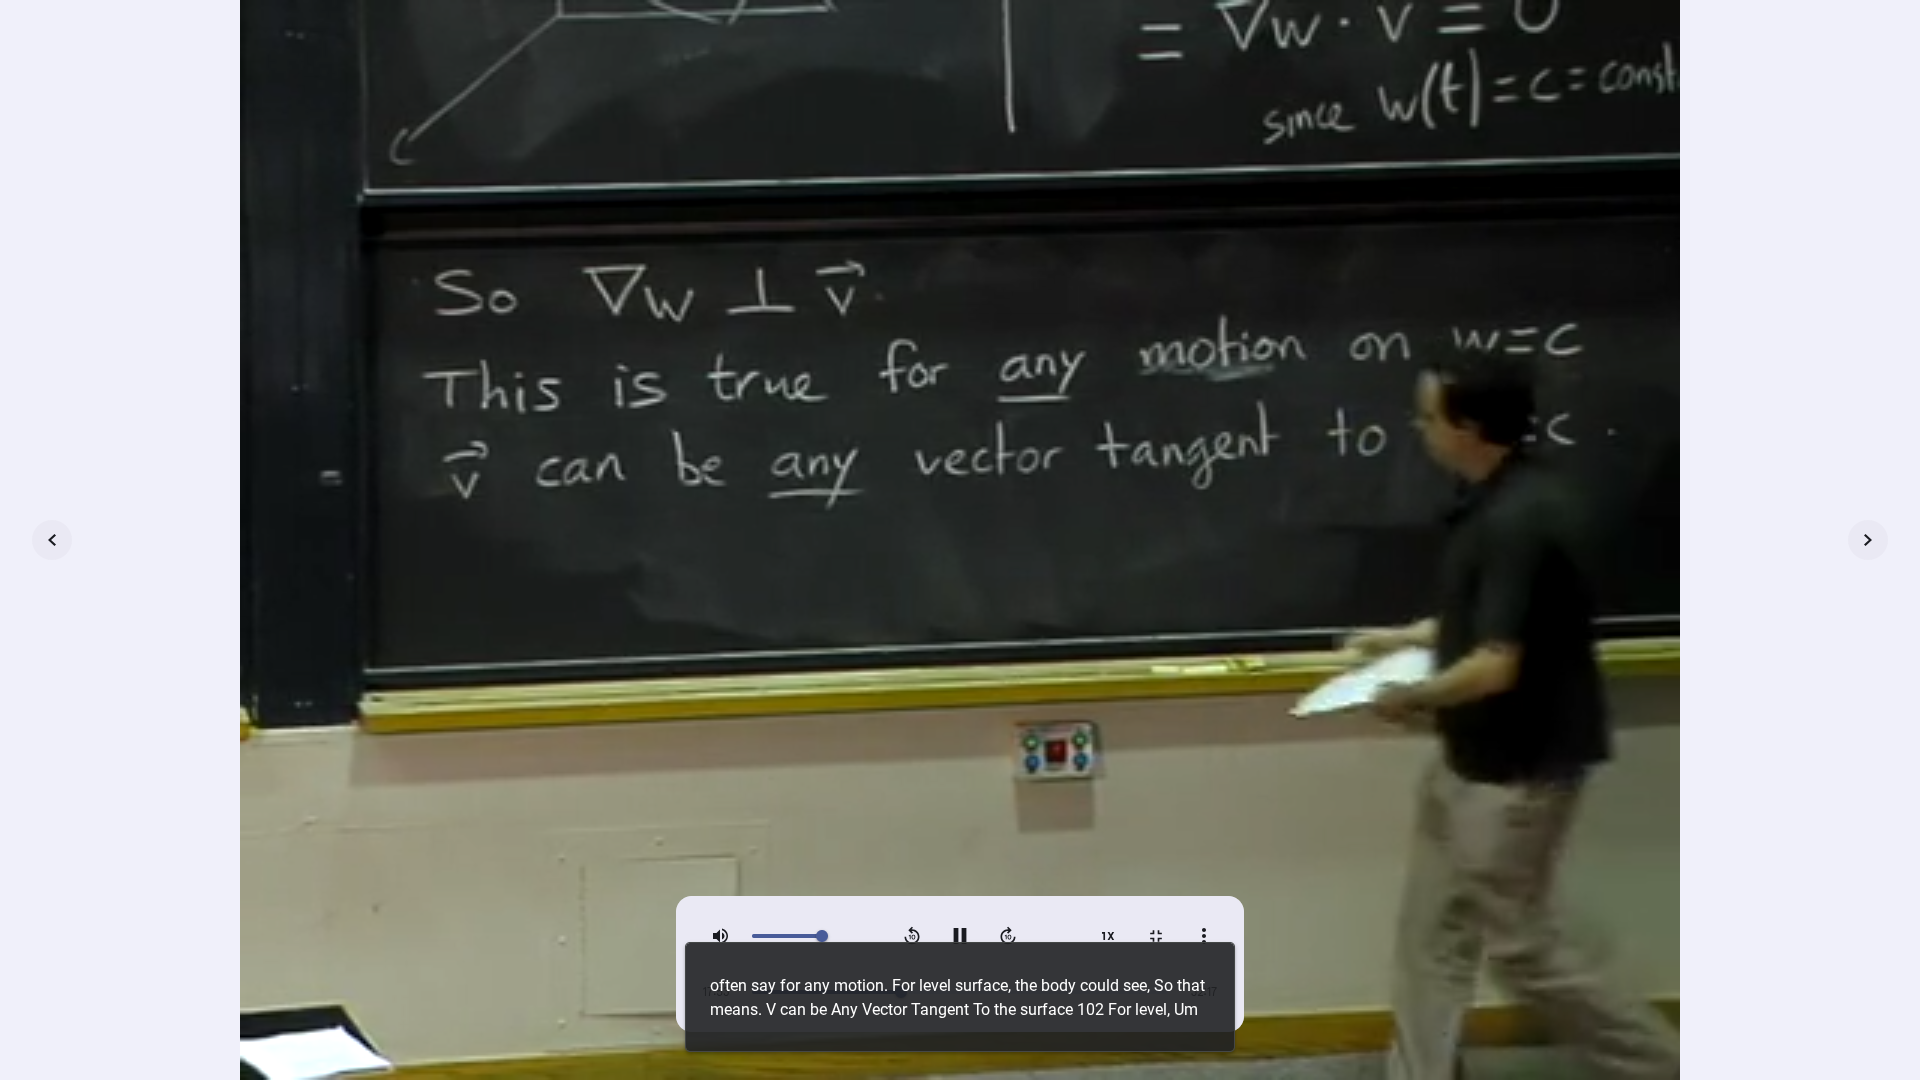 C
= ∇w · v = 0
since w(t) = c = const
So ∇w ⊥ v⃗.
This is true for any motion on w=c
v⃗ can be any vector tangent to =c.
1X
often say for any motion. For level surface, the body could see, So that
means. V can be Any Vector Tangent To the surface 102 For level, Um